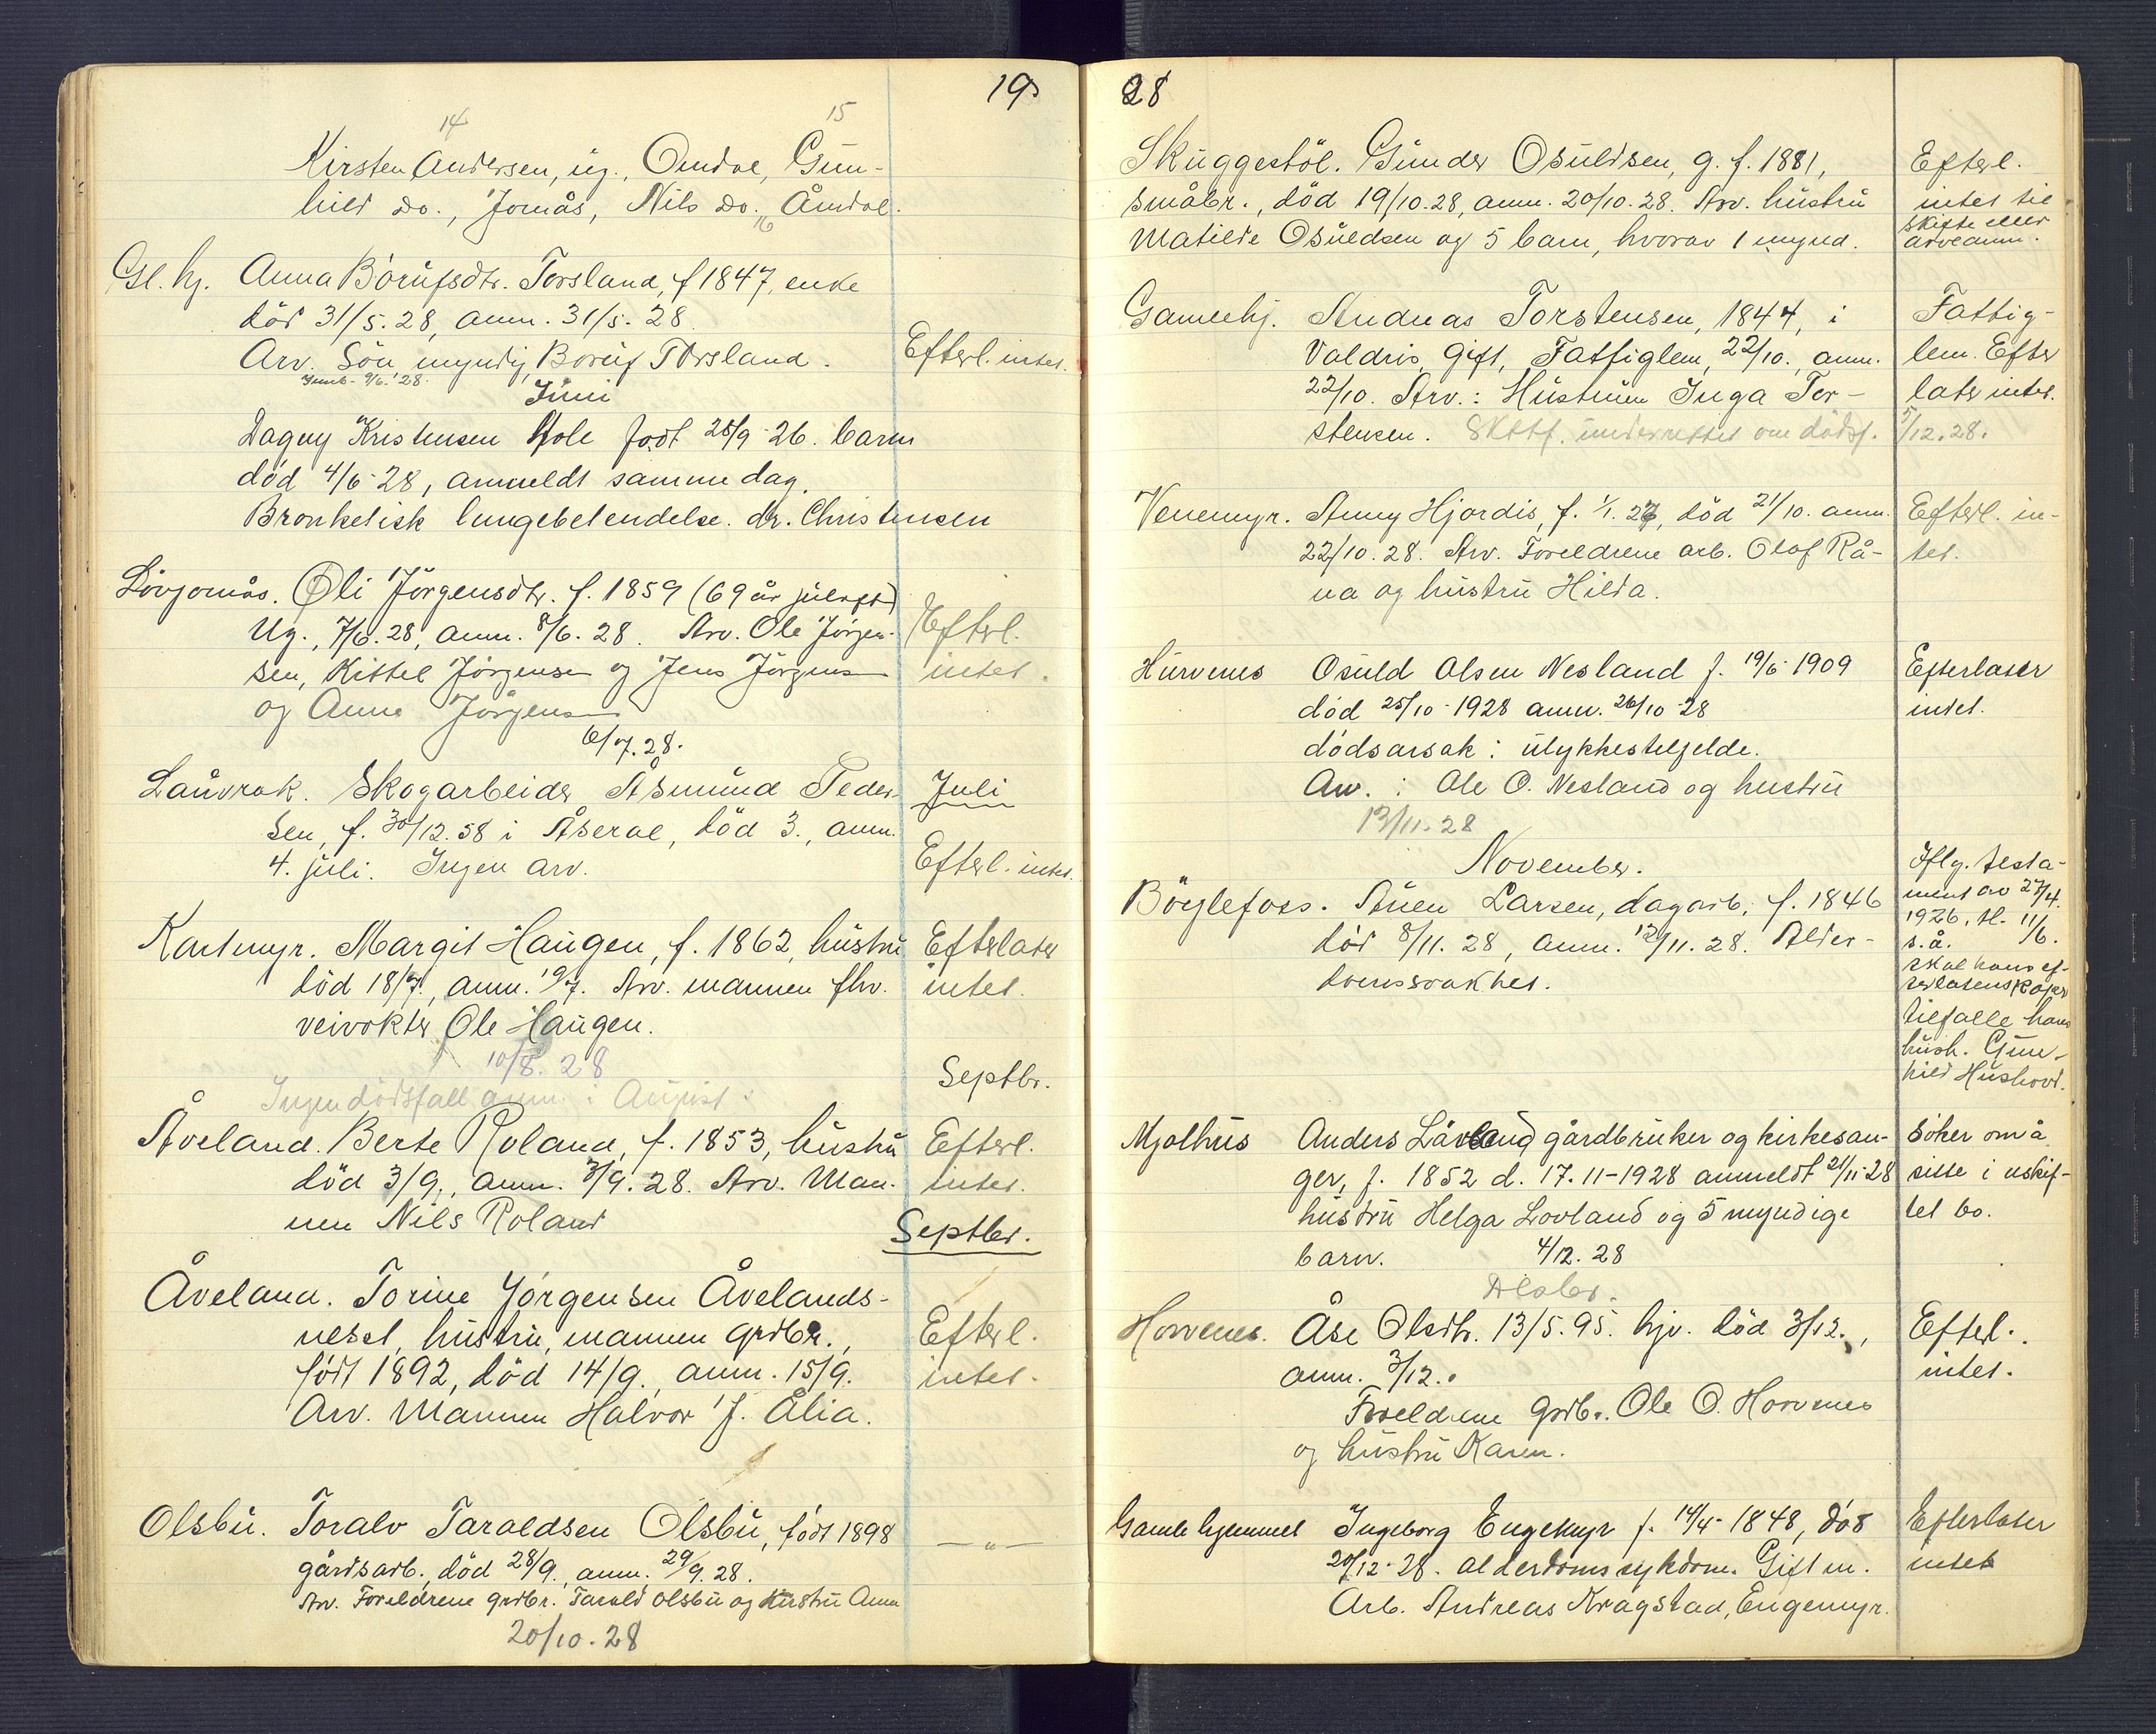 19
14 15
Kirsten Andersen, ug., Omdal, Gun-
hild do., Jomås, Nils do. Åmdal.
16
Gl. hj. Anna Børufsdtr. Torsland, f 1847, enke
död 31/5. 28, anm. 31/5. 28
Arv. Sön, myndig, Boruf Torsland. Efterl. intet.
9/6. 28.
Juni
Dagny Kristensen Hole født 28/9-26. barn
død 4/6-28, anmeldt samme dag.
Bronketisk lungebetendelse. dr. Christensen
Lövjomås. Oli Jörgensdtr. f. 1859 (69 år julaft)
Ug., 7/6. 28, anm. 8/6. 28. Arv. Ole Jörgen- Efterl.
sen, Kittel Jörgensen og Jens Jörgensen intet.
og Anne Jörgensen
6/7. 28.
Lauvrak. Skogarbeider Åsmund Peder- Juli
sen, f. 30/12. 58 i Åseral, död 3., anm.
4. juli. Ingen arv. Efterl. intet.
Kartmyr. Margit Haugen, f. 1862, hustru Efterlater
död 18/7., anm. 19/7. Arv. mannen fhv. intet.
veivokter Ole Haugen.
10/8. 28
Septbr.
Ingen dödsfall anm. i August.
Åveland. Berte Roland, f. 1853, hustru Efterl.
död 3/9., anm. 3/9. 28. Arv. Man- intet.
nen Nils Roland
Septbr.
Åveland. Torine Jörgensen Åvelands-
neset, hustru, mannen grdbr., Efterl.
født 1892, död 14/9., anm. 15/9. intet.
Arv. Mannen Halvor J. Ålia.
Olsbu. Toralv Taraldsen Olsbu, født 1898 — „ —
gårdsarb., död 28/9., anm. 29/9. 28.
Arv. Foreldrene grdbr. Tarald Olsbu og hustru Anna
20/10. 28
28
Skuggestöl. Gunder Osuldsen, g. f. 1881, Efterl.
småbr., död 19/10. 28, anm. 20/10. 28. Arv. hustru intet til
Matilde Osuldsen og 5 barn, hvorav 1 umynd. skifte eller
arveanm.
Gamlehj. Andreas Torstensen, 1844, i Fattig-
Valdris, Gift, Fattiglem, 22/10., anm. lem. Efter
22/10. Arv.: Hustruen Inga Tor- later intet.
stensen. Skttf. underrettet om dödsf. 5/12. 28.
Venemyr. Anny Hjordis, f. 1/1. 27, död 21/10. anm. Efterl. in-
22/10. 28. Arv. Foreldrene arb. Olaf Rå- tet.
na og hustru Hilda.
Hurvenes Osuld Olsen Nesland f. 19/6-1909 Efterlater
død 25/10-1928 anm. 26/10-28 intet.
dødsarsak: ulykkestelfelde.
Arv. : Ole O. Nesland og hustru
13/11. 28
November.
Böylefoss. Auen Larsen, dagarb., f. 1846
död 8/11. 28, anm. 12/11. 28. Alder-
domssvakhet.
Iflg. testa-
ment av 27/4.
1926, tl. 11/6.
s.å.
skal hans ef-
terlatenskaper
tilfalle hans
hush. Gun-
hild Hushovd.
Mjølhus Anders Løvland gårdbruker og kirkesan- Søker om å
ger, f. 1852 d. 17.11-1928 anmeldt 21/11-28 sitte i uskif-
hustru Helga Lovland og 5 myndige tet bo.
barn. 4/12. 28
Desbr.
Horvenes. Åse Olsdtr. 13/5. 95. hjv. död 3/12., Efterl.
anm. 3/12. intet.
Foreldrene grdbr. Ole O. Horvenes
og hustru Karen.
Gamle hjemmet Ingeborg Engemyr f. 14/4-1848, død Efterlater
20/12-28. alderdomssykdom. Gift m. intet
Arb. Andreas Kragstad, Engemyr.